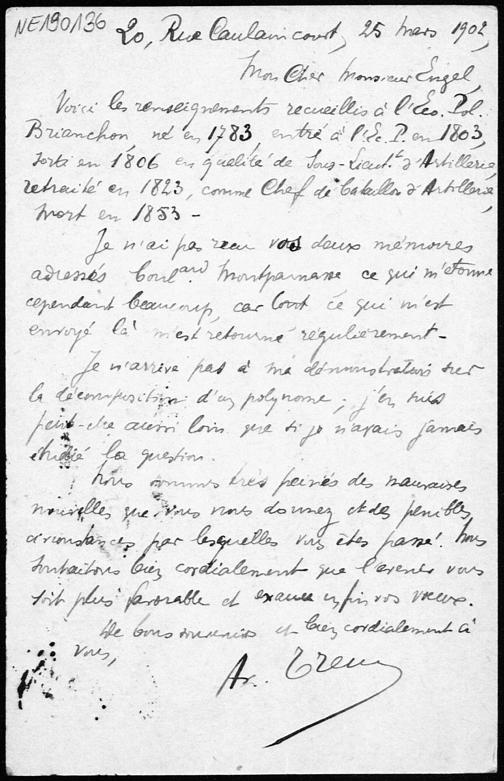 NE190136
20, Rue Caulaincourt, 25 mars 1902,
Mon Cher Monsieur Engel,
Voici les renseignements recueillis à l'Ec. Pol.
Brianchon né en 1783 entré à l'Ec. P. en 1803,
sorti en 1806 en qualité de Sous-Lieut.t d'Artillerie,
retraité en 1823, comme Chef de bataillon d'Artillerie,
mort en 1853 -
Je n'ai pas reçu vos deux mémoires
adressés boul.ard Montparnasse ce qui m'étonne
cependant beaucoup, car tout ce qui m'est
envoyé là m'est retourné régulièrement -
Je n'arrive pas à ma démonstration sur
la décomposition d'un polynome ; j'en suis
peut-être aussi loin que si je n'avais jamais
étudié la question.
Nous sommes très peinés des mauvaises
nouvelles que vous nous donnez et des pénibles
circonstances par lesquelles vous êtes passé. Nous
souhaitons bien cordialement que l'avenir vous
soit plus favorable et exauce enfin vos vœux.
De bons souvenirs et bien cordialement à
vous,